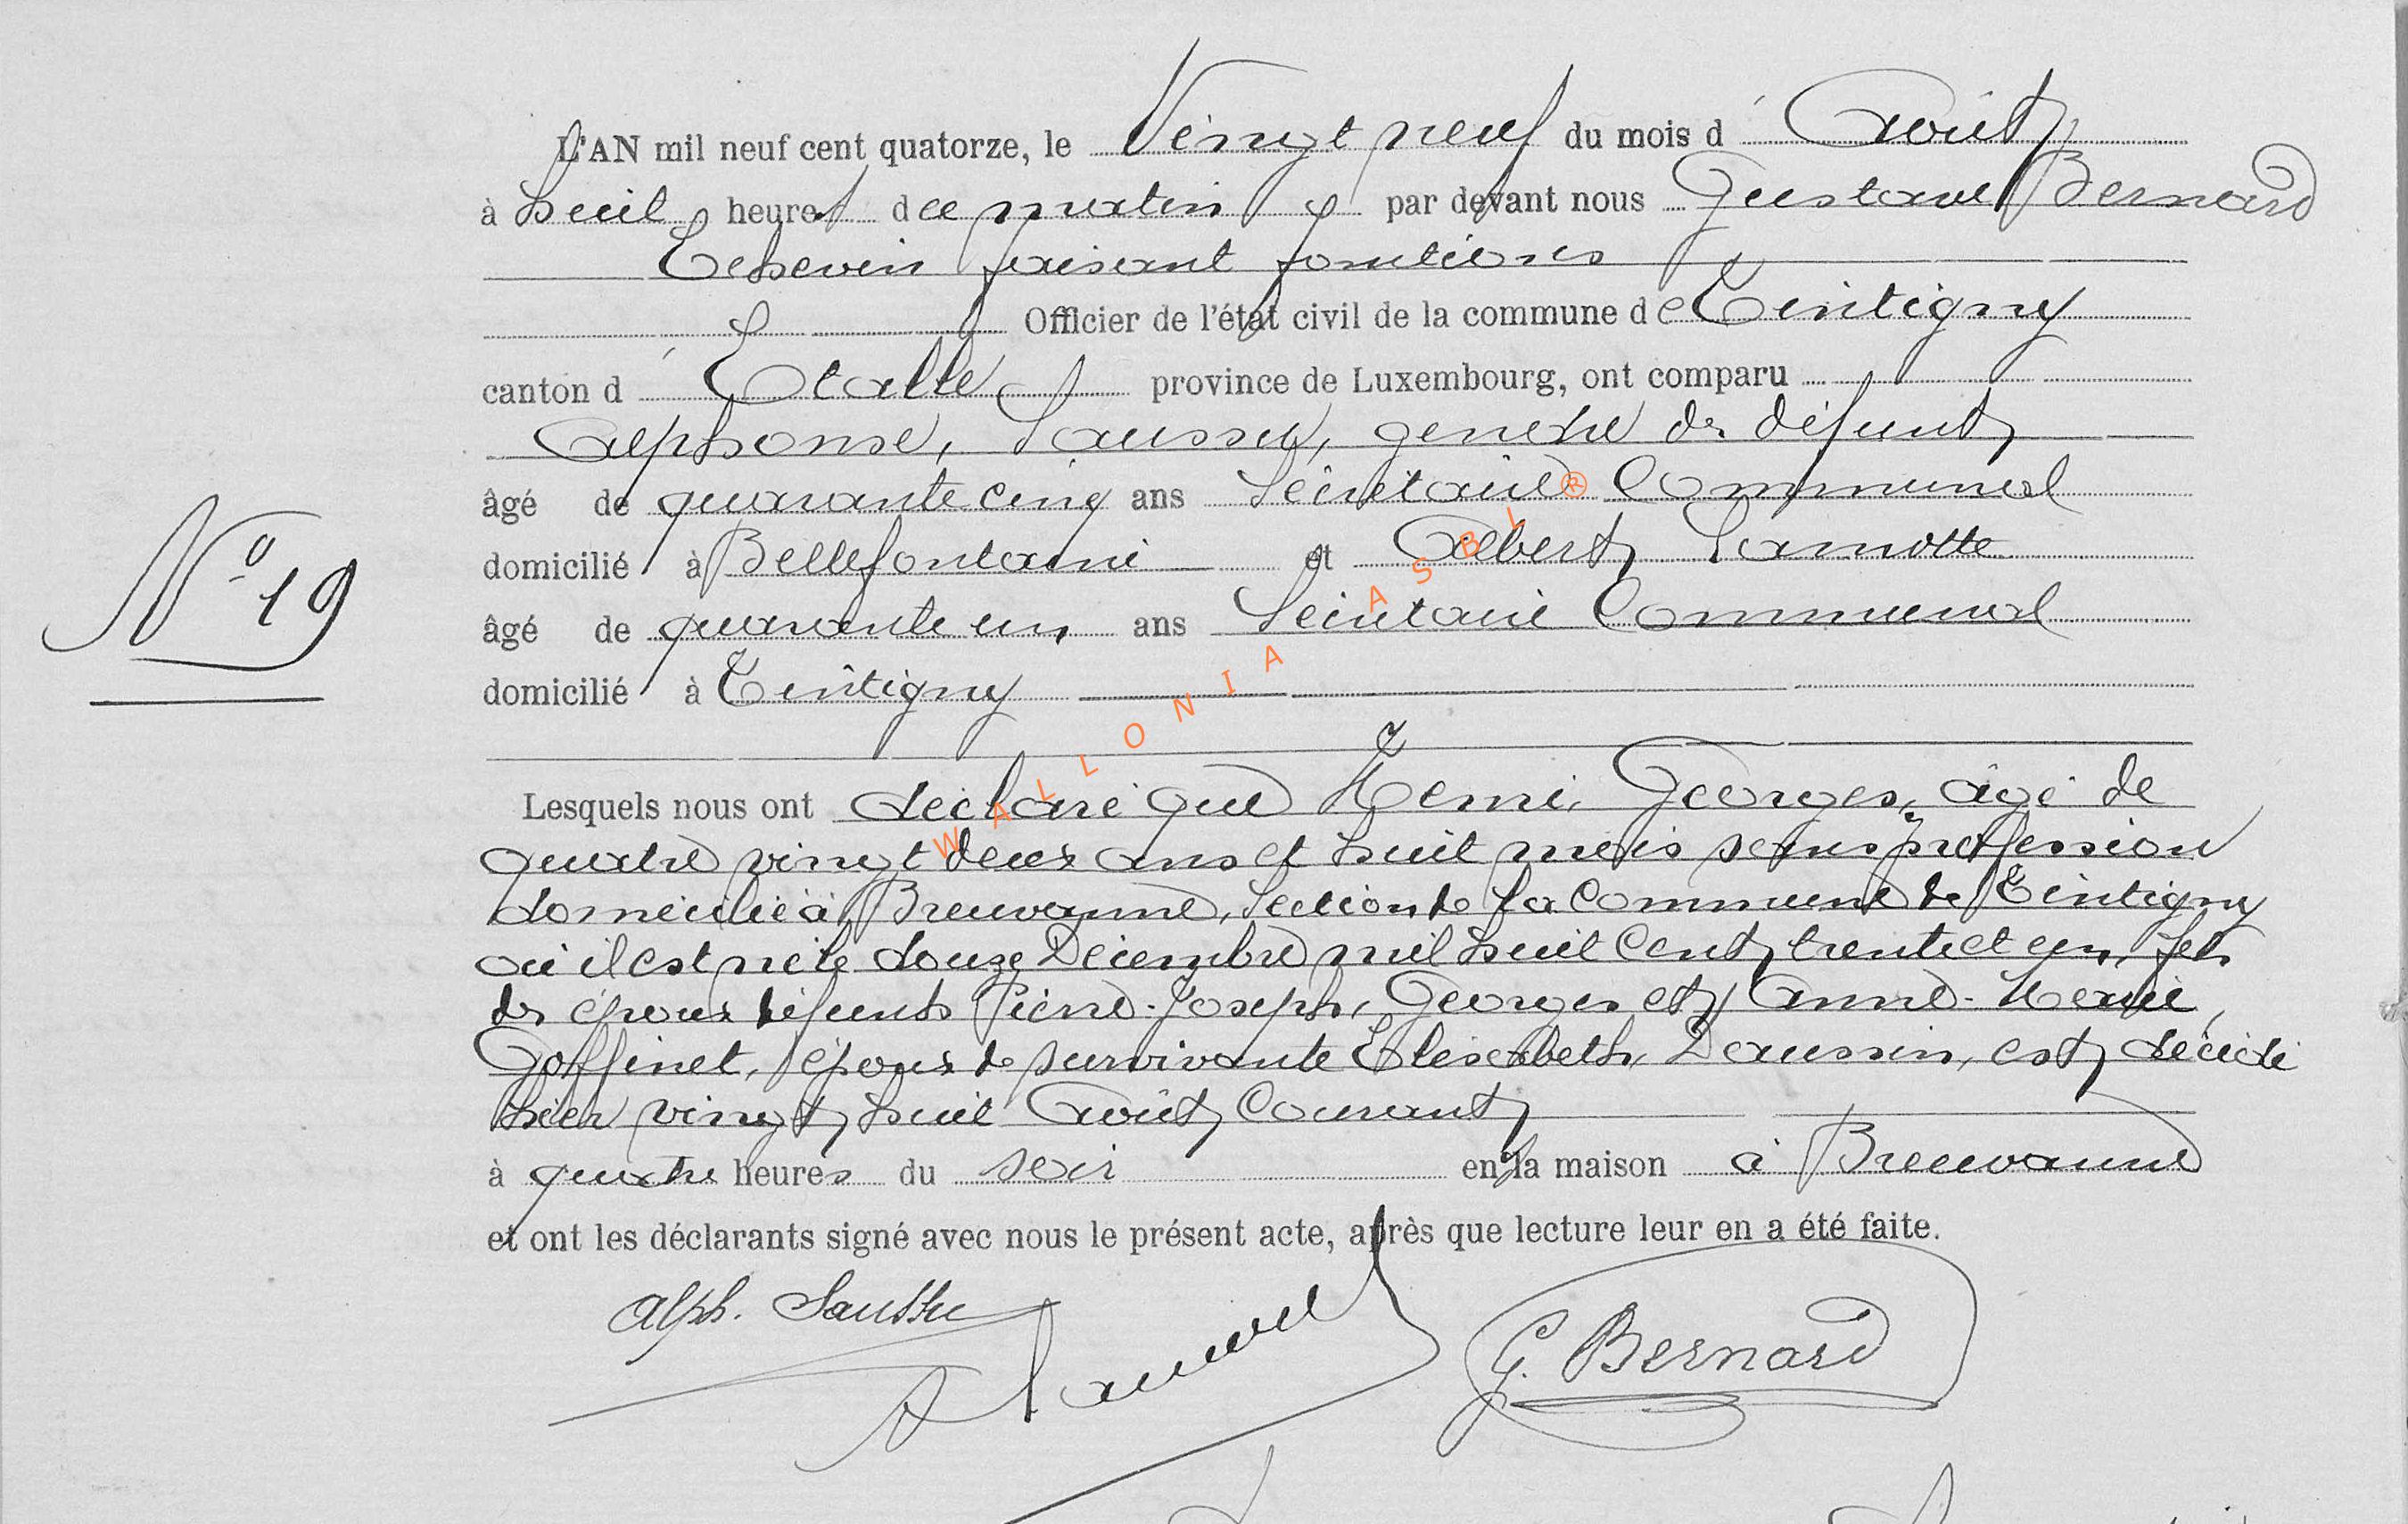 L'AN mil neuf cent quatorze, le Vingt neuf du mois d'Août
à huit heures du matin par devant nous Gustave Bernard
Echevin faisant fonctions
Officier de l'état civil de la commune de Tintigny
canton d'Etalle province de Luxembourg, ont comparu
Alphonse, Saussu, gendre du défunt
âgé de quarante cinq ans Secrétaire Communal
domicilié à Bellefontaine et Albert Lamotte
N° 19
âgé de quarante un ans Secrétaire Communal
domicilié à Tintigny
Lesquels nous ont déclaré que Henri, Georges, âgé de
quatre vingt deux ans et huit mois sans profession
domicilié à Breuvanne, Section de la Commune de Tintigny
où il est né le douze Décembre mil huit Cent trente et un, fils
des époux défunts Pierre-Joseph, Georges et Anne-Marie
Goffinet, époux de survivante Elisabeth, Daussin, est décédé
hier vingt huit Août Courant
à quatre heures du soir en sa maison à Breuvanne
et ont les déclarants signé avec nous le présent acte, après que lecture leur en a été faite.
Alph. Saussu
G. Bernard
WALLONIA ASBL ®